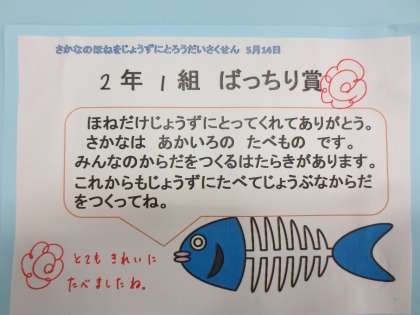 さかなのほねをじょうずにとろうだいさくせん 5月14日
2年 1組 ばっちり賞
ほねだけじょうずにとってくれてありがとう。
さかなは あかいろの たべもの です。
みんなのからだをつくるはたらきがあります。
これからもじょうずにたべてじょうぶなからだ
をつくってね。
とても きれいに
たべましたね。